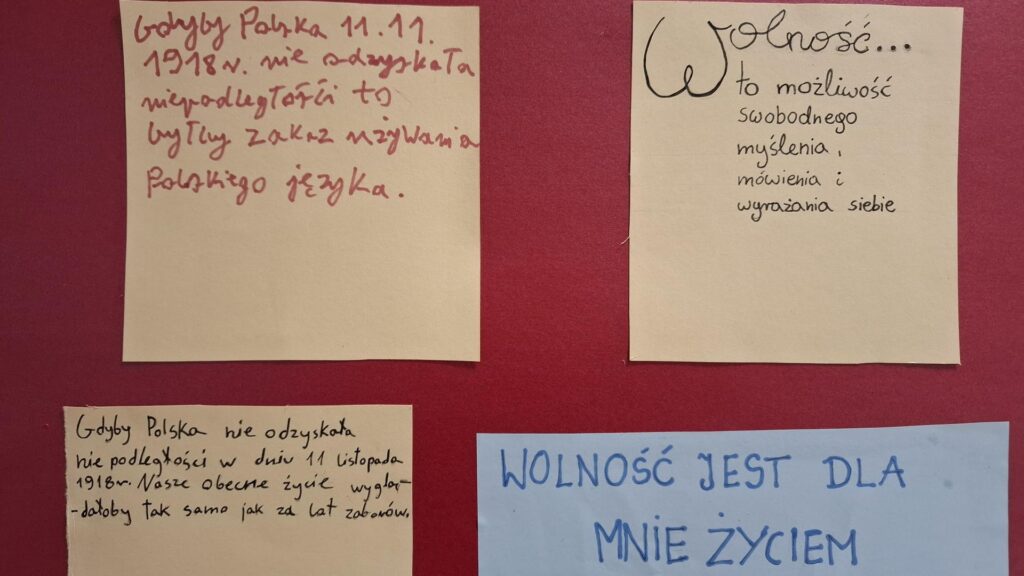 Gdyby Polska 11.11.
1918r. nie odzyskała
niepodległości to
byłby zakaz używania
Polskiego języka.
Wolność...
to możliwość
swobodnego
myślenia,
mówienia i
wyrażania siebie
Gdyby Polska nie odzyskała
nie podległości w dniu 11 listopada
1918r. Nasze obecne życie wyglą-
-dałoby tak samo jak za lat zaborów.
WOLNOŚĆ JEST DLA
MNIE ŻYCIEM